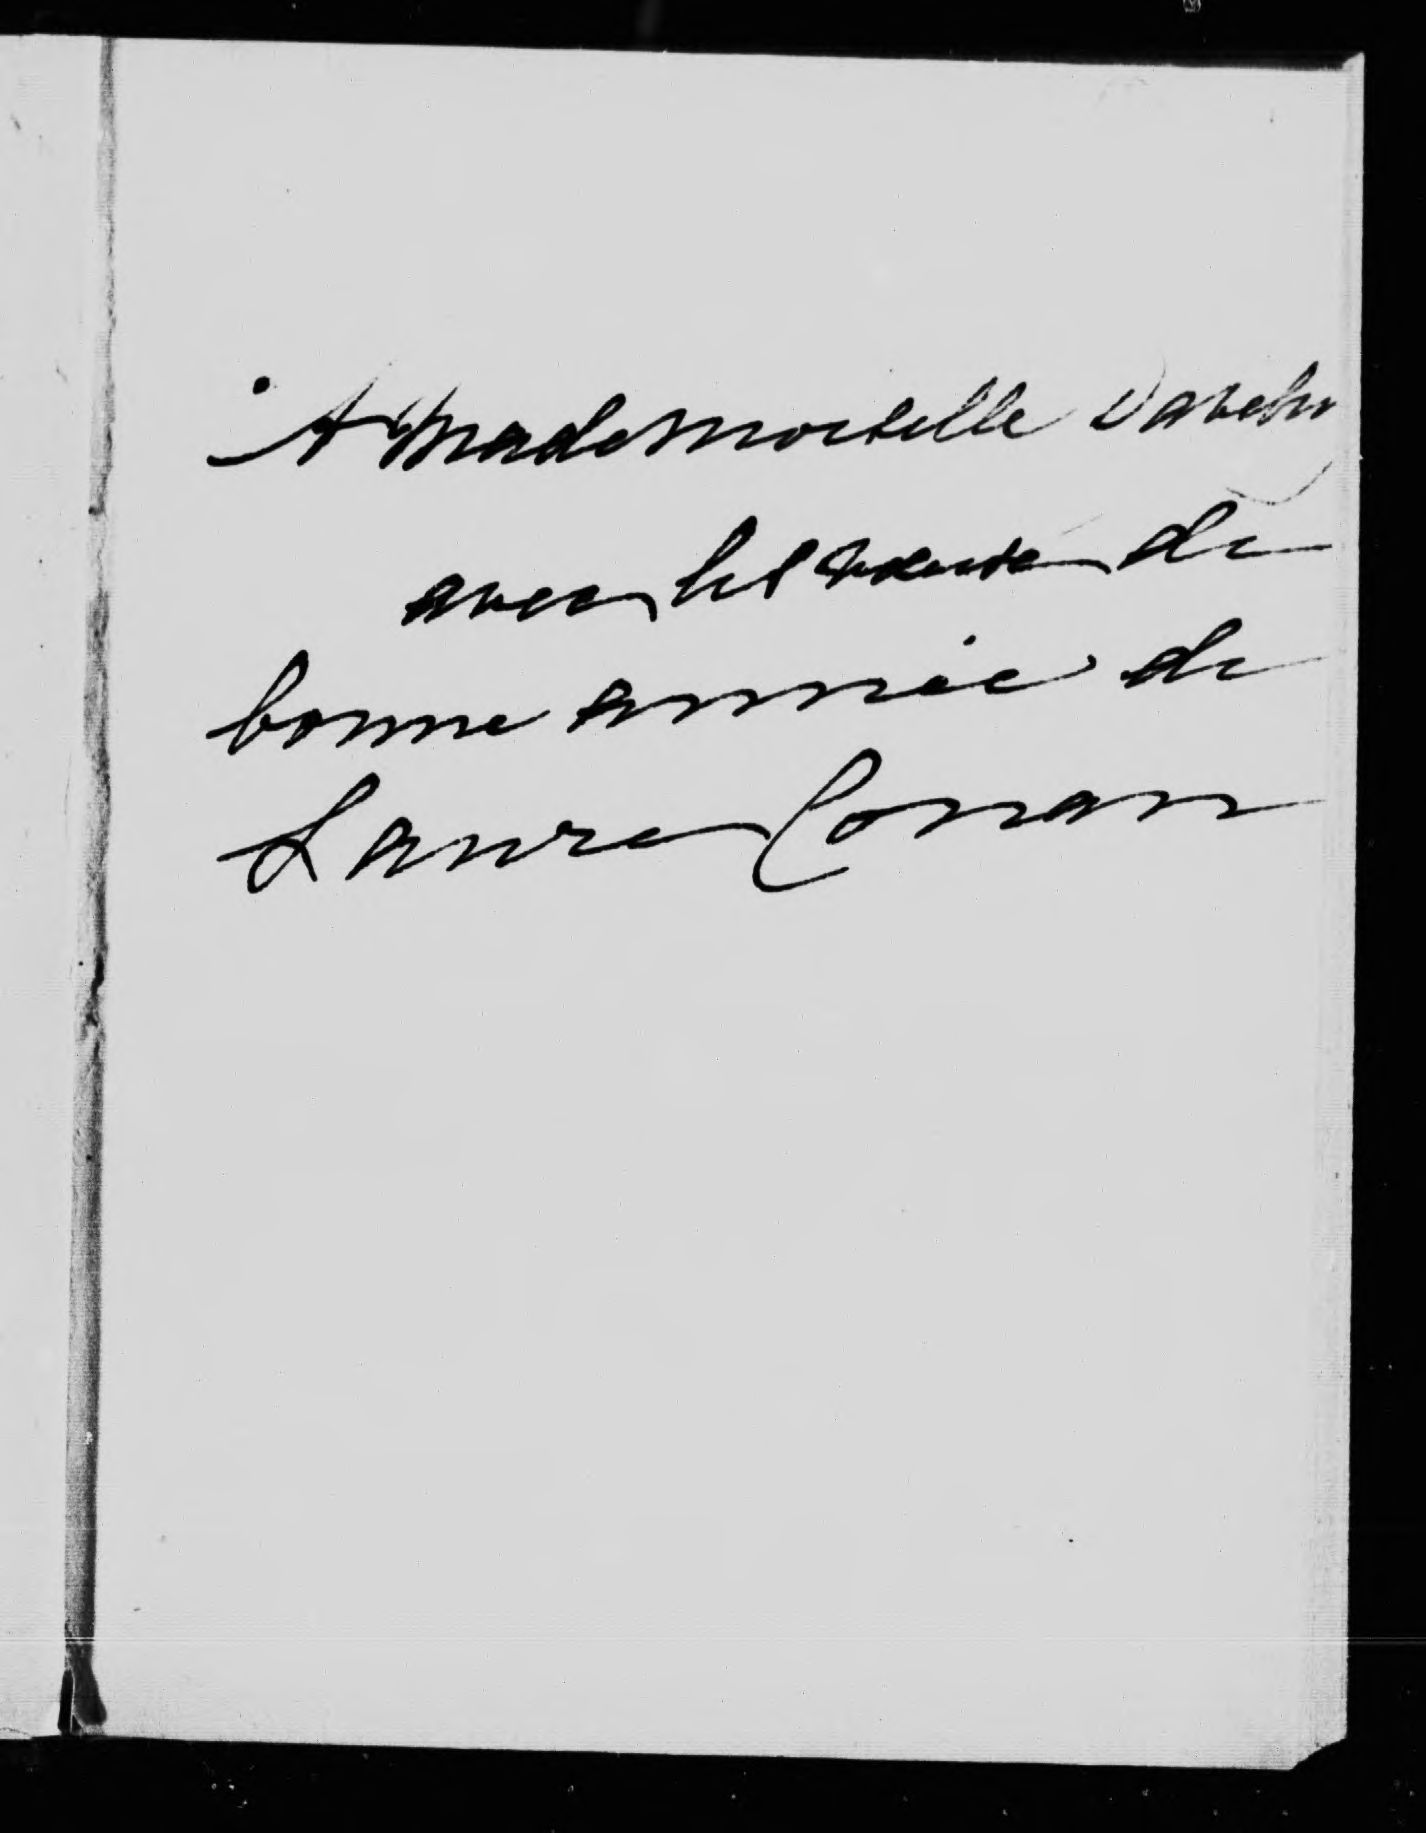 A Mademoiselle
avec les voeux de
bonne année de
Laure Conan